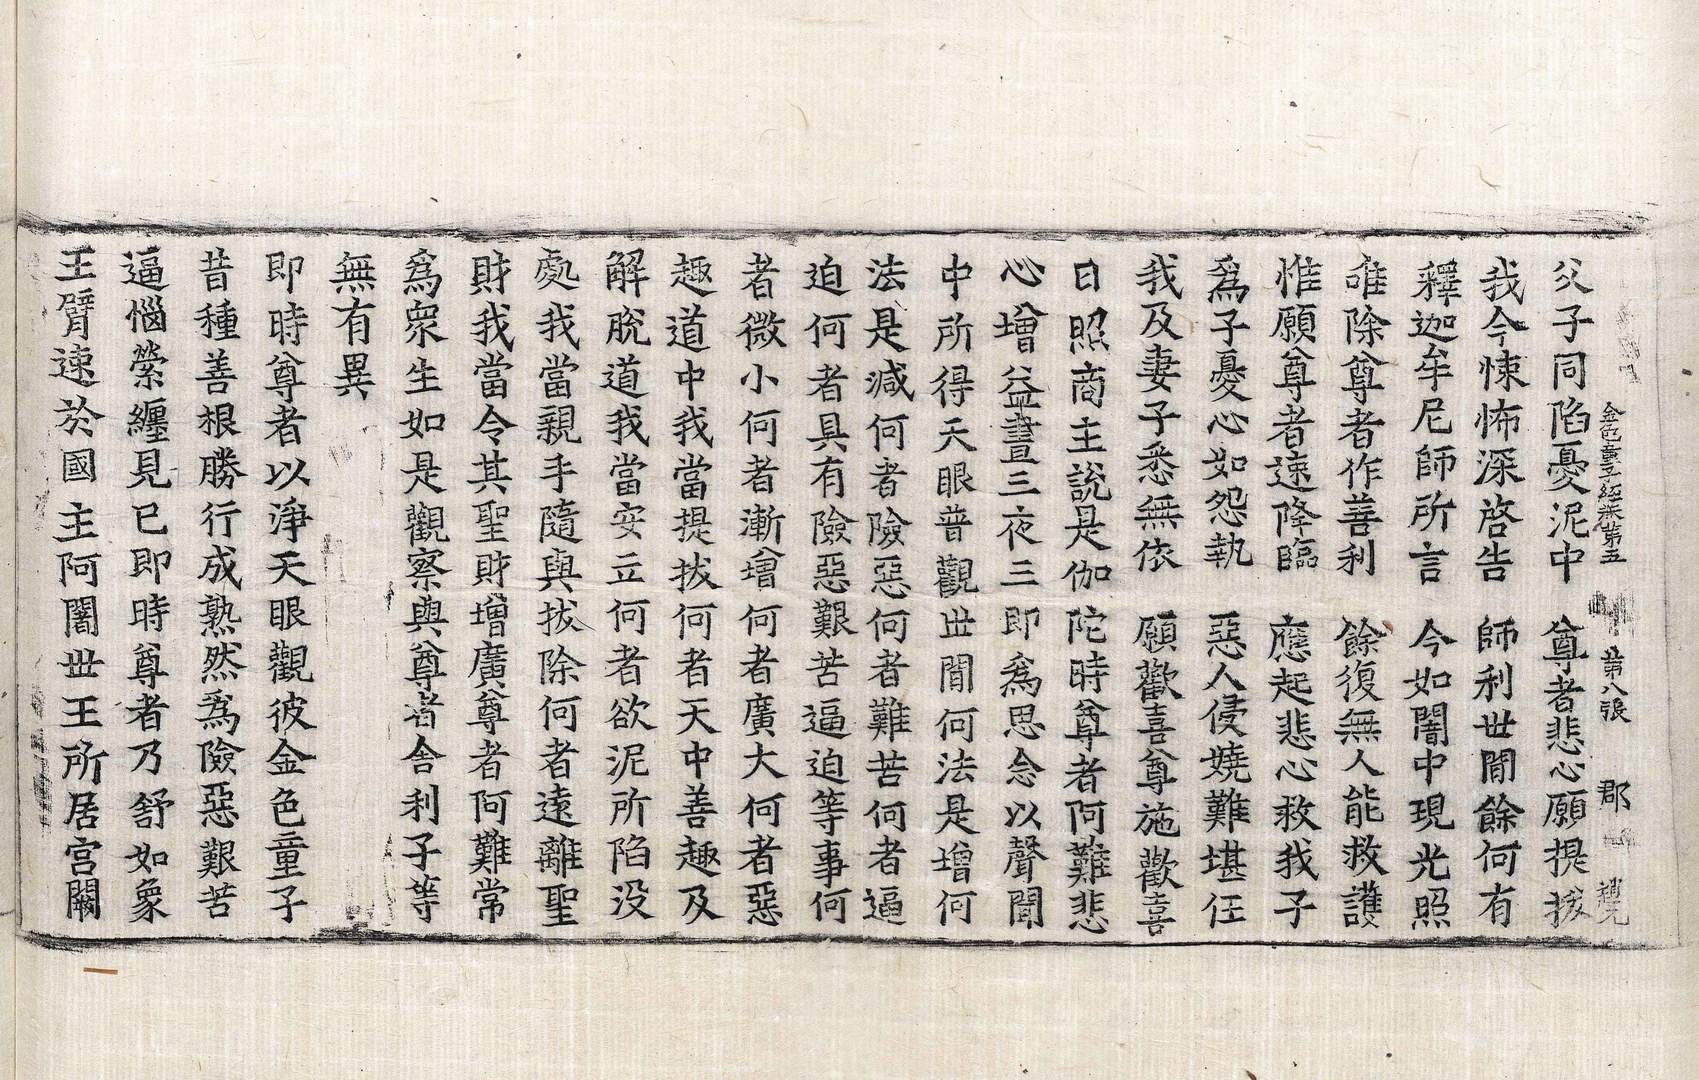 金色童子經卷第五 第八張 郡 趙元
父子同陷憂泥中 尊者悲心願提拔
我今悚怖深啓告 師利世間餘何有
釋迦牟尼師所言 今如闇中現光照
唯除尊者作善利 餘復無人能救護
惟願尊者速降臨 應起悲心救我子
爲子憂心如怨執 惡人侵嬈難堪任
我及妻子悉無依 願歡喜尊施歡喜
日照商主說是伽陀時尊者阿難悲
心增益晝三夜三即爲思念以聲聞
中所得天眼普觀世間何法是增何
法是減何者險惡何者難苦何者逼
迫何者具有險惡艱苦逼迫等事何
者微小何者漸增何者廣大何者惡
趣道中我當提拔何者天中善趣及
解脫道我當安立何者欲泥所陷没
處我當親手隨與拔除何者遠離聖
財我當令其聖財增廣尊者阿難常
爲衆生如是觀察與尊者舍利子等
無有異
即時尊者以淨天眼觀彼金色童子
昔種善根勝行成熟然爲險惡艱苦
逼惱縈纏見已即時尊者乃舒如象
王臂速於國主阿闍世王所居宮闕